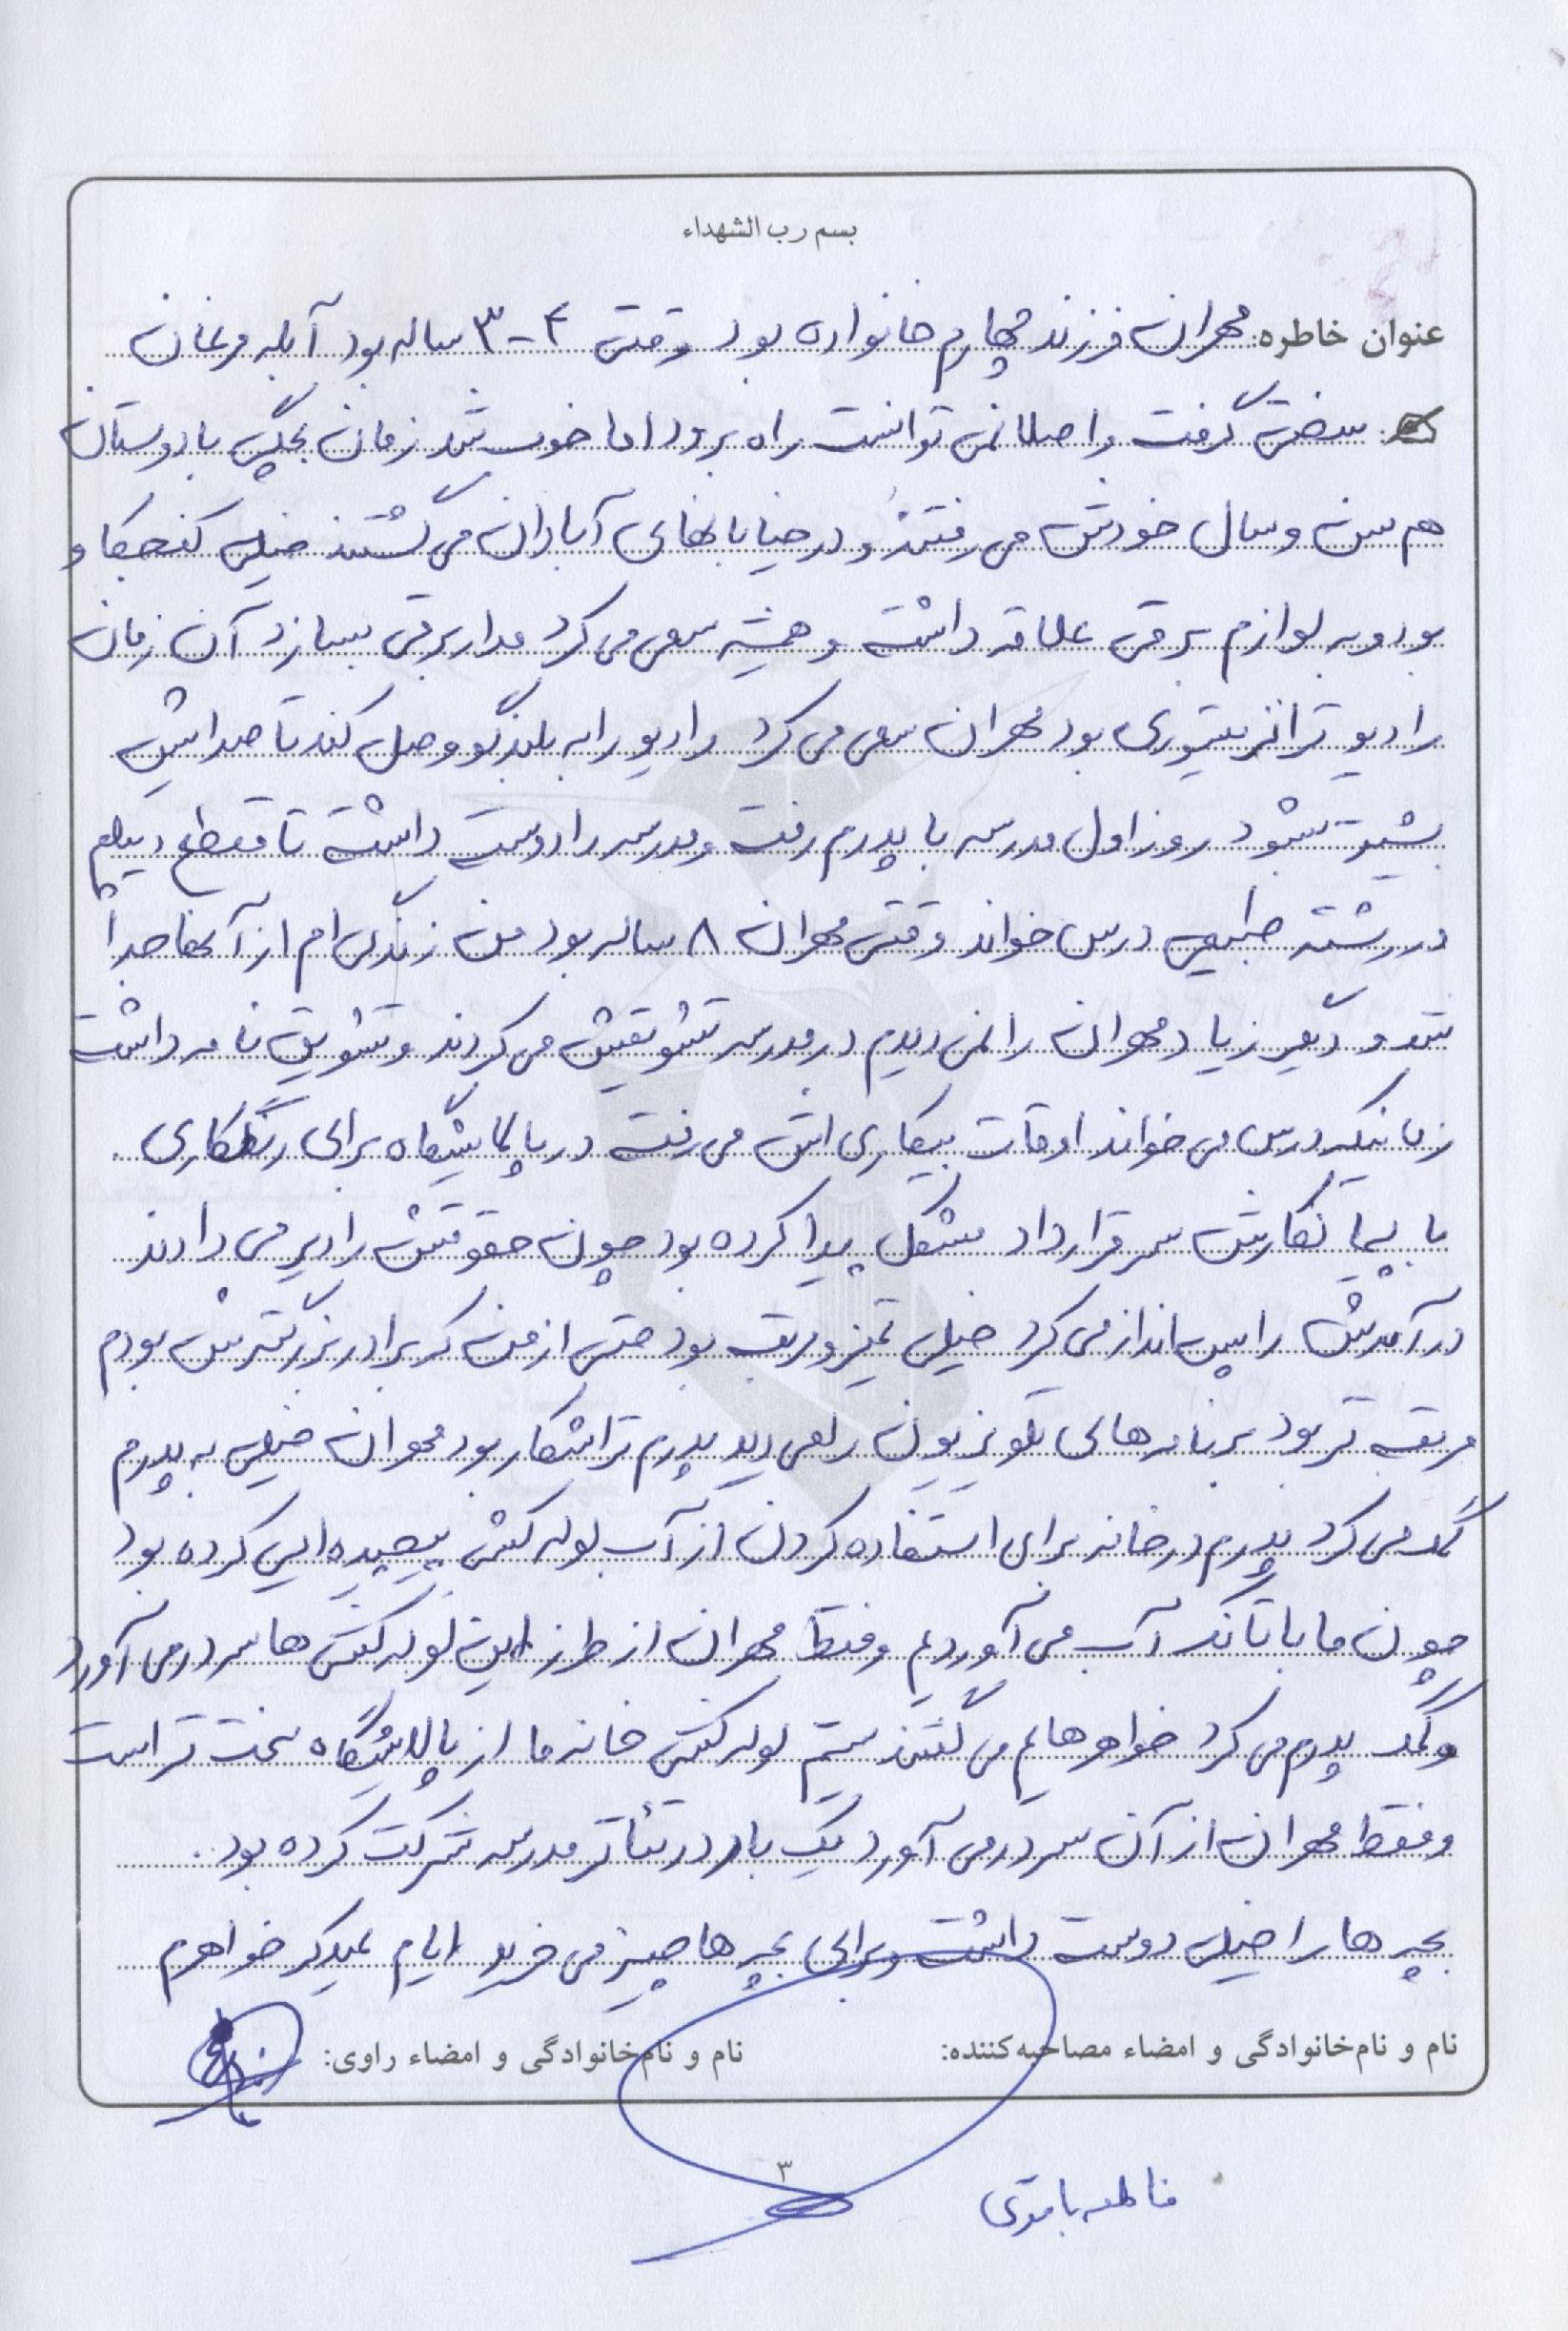 بسم رب الشهداء
عنوان خاطره: مهران فرزند چهارم خانواده بود وقتی ۴-۳ ساله بود آبله مرغان
سختی گرفت و اصلا نمی توانست راه برود اما خوب شد زمان بچگی با دوستان
هم سن و سال خودش می رفتند و در خیابانهای آبادان می گشتند خیلی کنجکاو
بود و به لوازم برقی علاقه داشت و همیشه سعی می کرد مدار برقی بسازد آن زمان
رادیو ترانزیستوری بود مهران سعی می کرد رادیو را به بلندگو وصل کند تا صدایش
بیشتر شود روز اول مدرسه با پدرم رفت و مدرسه را دوست داشت تا مقطع دیپلم
در رشته طبیعی درس خواند وقتی مهران ۸ ساله بود من زندگی ام از آنها جدا
شد و دیگر زیاد مهران را نمی دیدم در مدرسه تشویقش می کردند و تشویق نامه داشت
زمانیکه درس می خواند اوقات بیکاری اش می رفت در پالایشگاه برای رنگکاری .
با پیمانکارش سر قرارداد مشکل پیدا کرده بود چون حقوقش را دیر می دادند
درآمدش را پس انداز می کرد خیلی تمیز و مرتب بود حتی از من که برادر بزرگترش بودم
مرتب تر بود برنامه های تلویزیون را می دید پدرم تراشکار بود مهران خیلی به پدرم
کمک می کرد پدرم در خانه برای استفاده کردن از آب لوله کشی پیچیده ایی کرده بود
چون ما با تانکر آب می آوردیم و فقط مهران از طرز این لوله کشی ها سر در می آورد
و کمک پدرم می کرد خواهرهایم می گفتند سیستم لوله کشی خانه ما از پالایشگاه سخت تر است
و فقط مهران از آن سر در می آورد یک بار در تئاتر مدرسه شرکت کرده بود .
بچه ها را خیلی دوست داشت و برای بچه ها چیز می خرید ایام عید که خواهرم
نام و نام‌خانوادگی و امضاء مصاحبه‌کننده: نام و نام‌خانوادگی و امضاء راوی:
۳
فاطمه